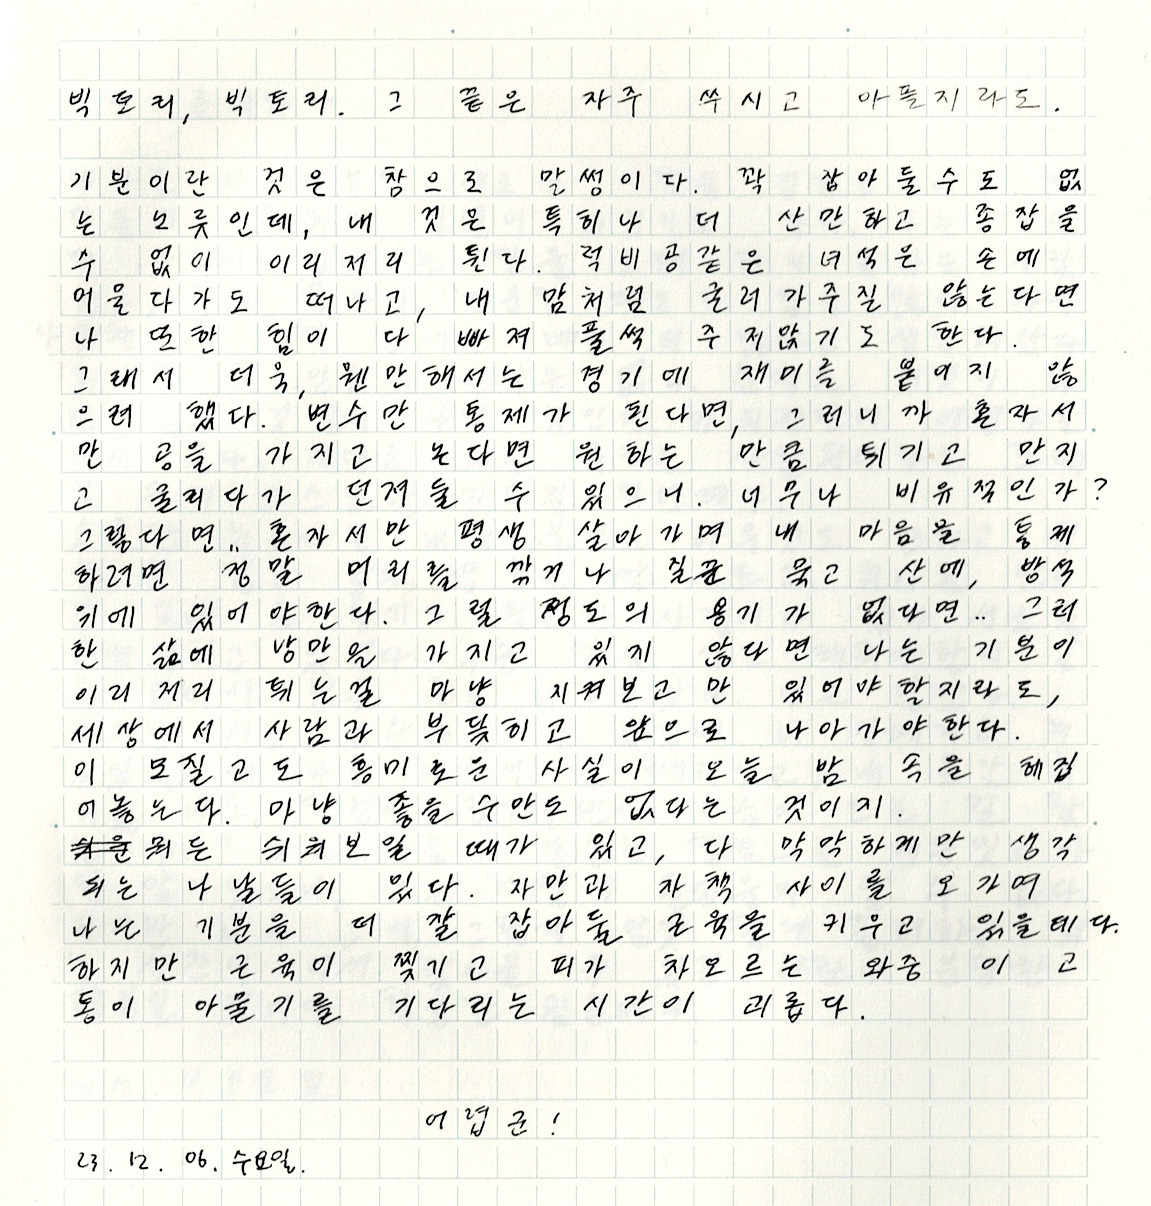 빅토리, 빅토리. 그 끝은 자주 쓰시고 아플지라도.
기분이란 것은 참으로 말썽이다. 꽉 잡아둘수도 없
는 노릇인데, 내 것은 특히나 더 산만하고 종잡을
수 없이 이리저리 튄다. 럭비공같은 녀석은 손에
머물다가도 떠나고, 내 맘처럼 굴러가주질 않는다면
나 또한 힘이 다 빠져 풀썩 주저앉기도 한다.
그래서 더욱, 웬만해서는 경기에 재미를 붙이지 않
으려 했다. 변수만 통제가 된다면, 그러니까 혼자서
만 공을 가지고 논다면 원하는 만큼 튀기고 만지
고 굴리다가 던져둘 수 있으니. 너무나 비유적인가?
그렇다면.. 혼자서만 평생 살아가며 내 마음을 통제
하려면 정말 머리를 깎거나 질끈 묶고 산에, 방석
위에 있어야한다. 그럴 정도의 용기가 없다면.. 그러
한 삶에 낭만을 가지고 있지 않다면 나는 기분이
이리저리 튀는걸 마냥 지켜보고만 있어야할지라도,
세상에서 사람과 부딪히고 앞으로 나아가야한다.
이 모질고도 흥미로운 사실이 오늘 밤 속을 헤집
어놓는다. 마냥 좋을수만도 없다는 것이지.
뭐든 쉬워보일 때가 있고, 다 막막하게만 생각
되는 나날들이 있다. 자만과 자책 사이를 오가며
나는 기분을 더 잘 잡아둘 근육을 키우고 있을테다.
하지만 근육이 찢기고 피가 차오르는 와중 이 고
통이 아물기를 기다리는 시간이 괴롭다.
어렵군!
23. 12. 06. 수요일.